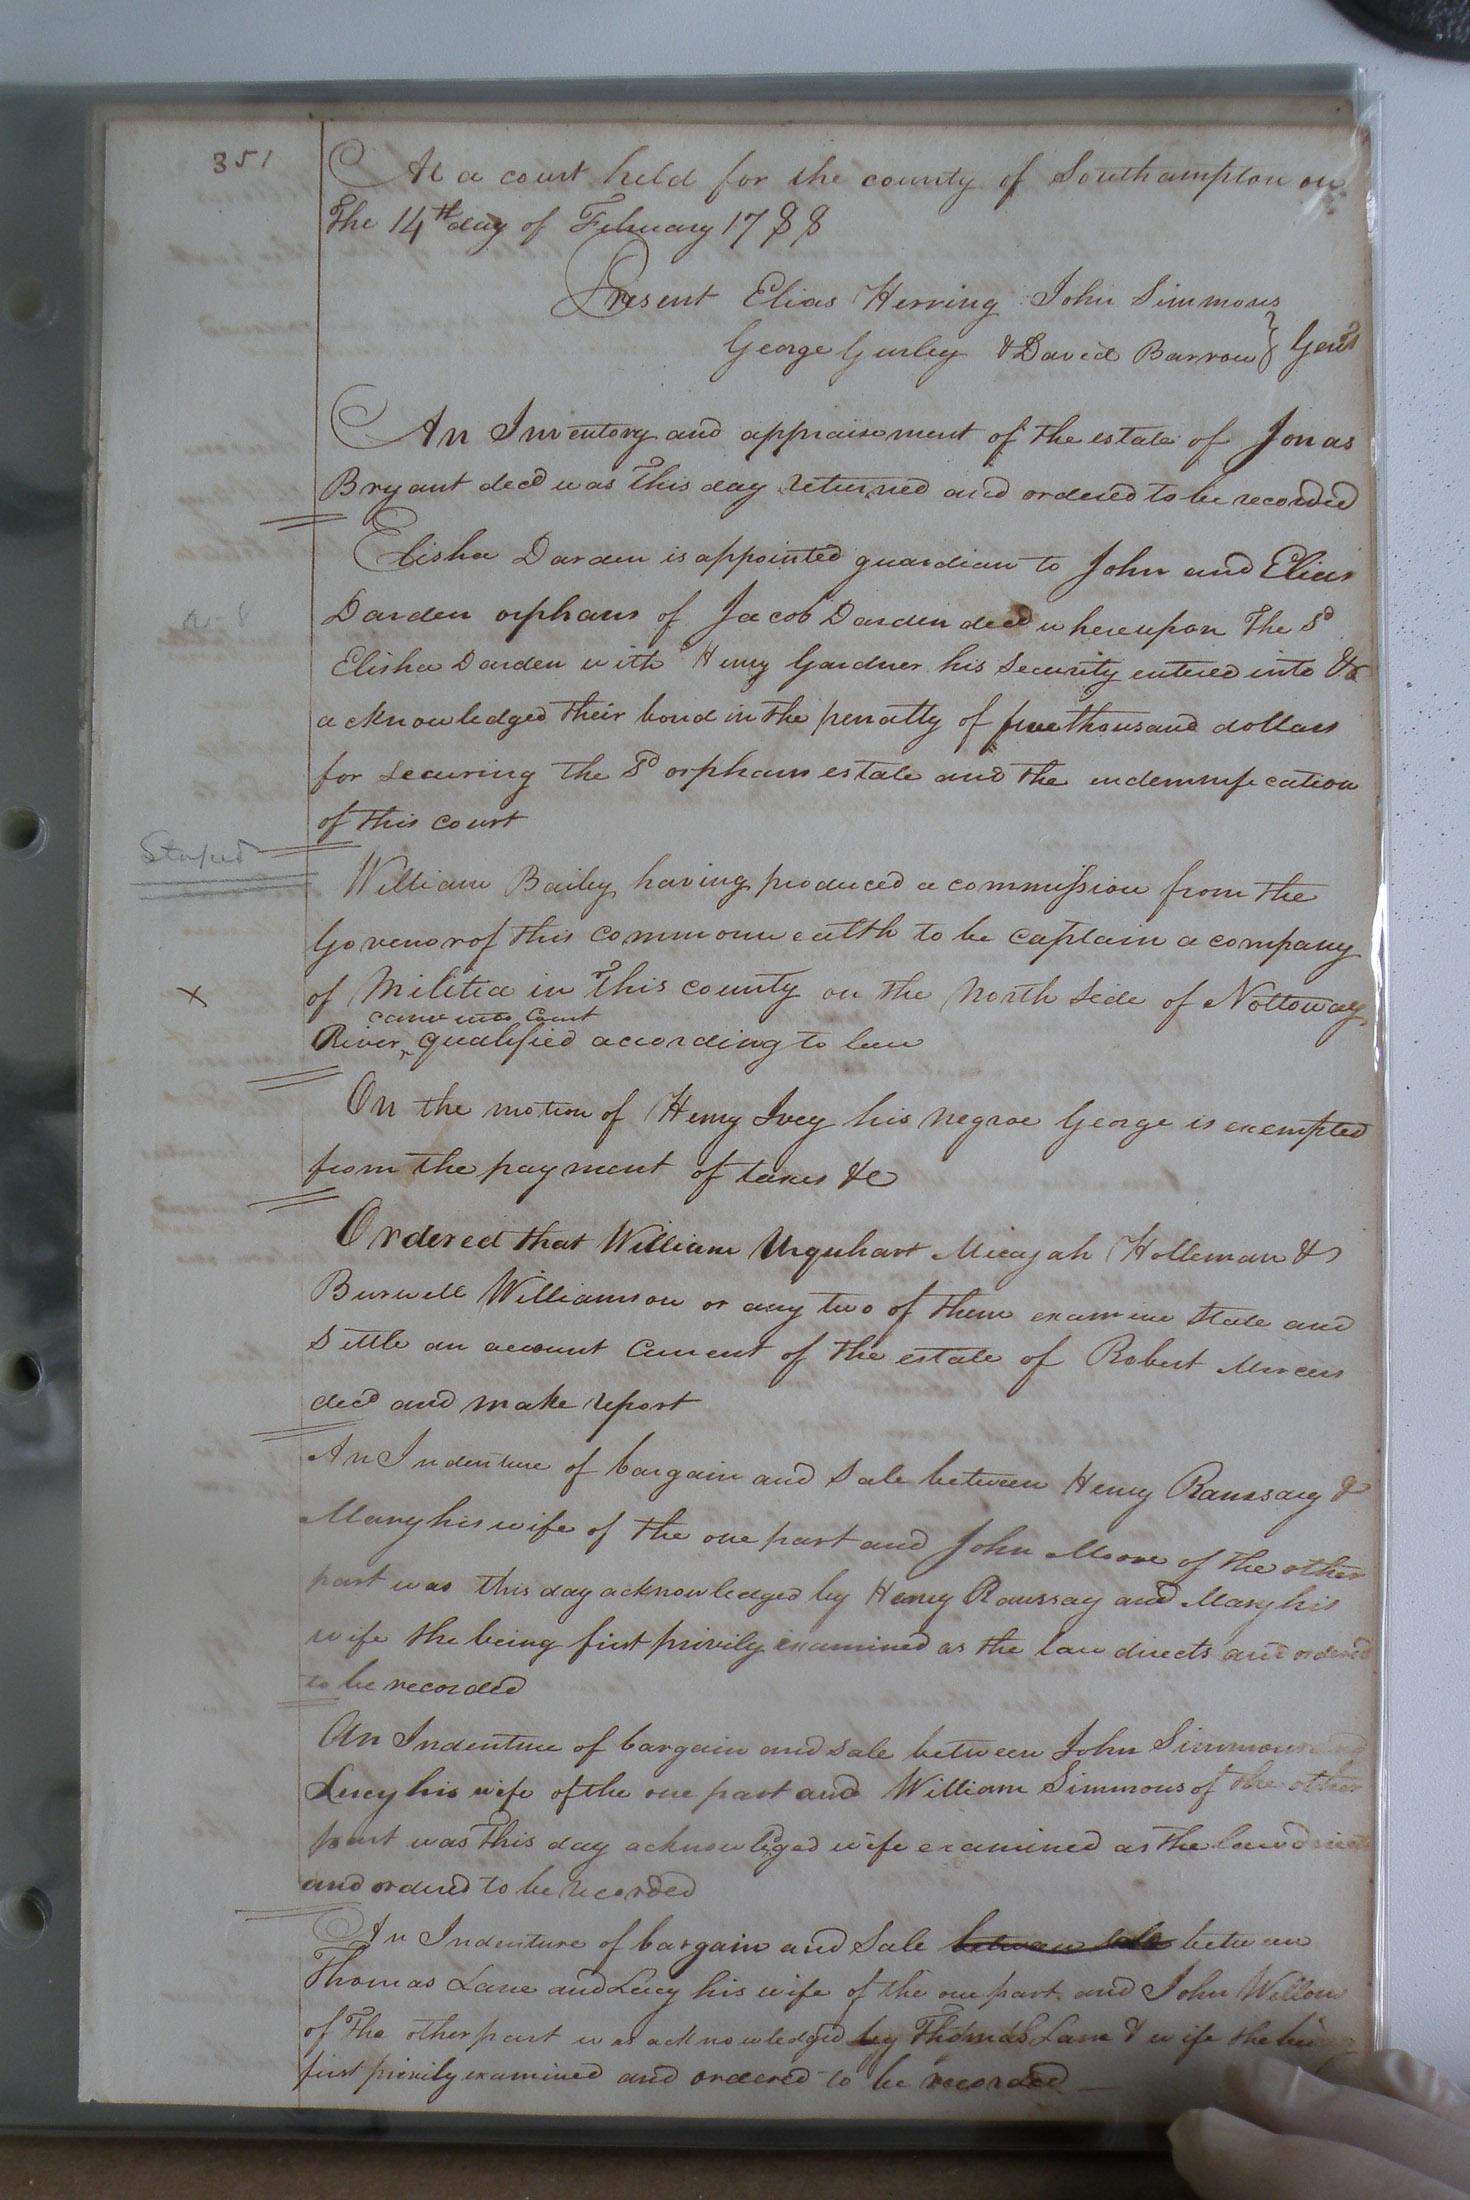 351
At a court held for the county of Southampton on
the 14th day of February 1788
Present Elias Herring John Simmons
George Gurley & David Barrow } Gent
An Inventory and appraisement of the estate of Jonas
Bryant decd was this day returned and ordered to be recorded
Elisha Darden is appointed guardian to John and Elias
Darden orphans of Jacob Darden decd whereupon the sd
Elisha Darden with Henry Gardner his security entered into &
acknowledged their bond in the penalty of five thousand dollars
for securing the sd orphans estate and the indemnification
of this court
William Bailey having produced a commission from the
Govenor of this commonweatlh to be captain a company
X
of Militia in this county on the North side of Nottoway
came into Court
River ^ qualified according to law
On the motion of Henry Ivey his negroe George is exempted
from the payment of taxes &c
Ordered that William Urquhart Micajah Holleman &
Burwell Williamson or any two of them examine state and
settle an account current of the estate of Robert
decd and make report
An Indenture of bargain and sale between Henry &
Mary his wife of the one part and John Moore of the other
part was this day acknowledged by Henry and Mary his
wife she being first privily examined as the law directs and ordered
to be recorded
An Indenture of bargain and sale between John Simmons and
Lucy his wife of the one part and William Simmons of the other
part was this day acknowledged wife examined as the law directs
and ordered to be recorded
An Indenture of bargain and sale between sale between
Thomas Lane and Lucy his wife of the one part and John
of the other part was acknowledged by Thomas Lane & wife she being
first privily examined and ordered to be recorded